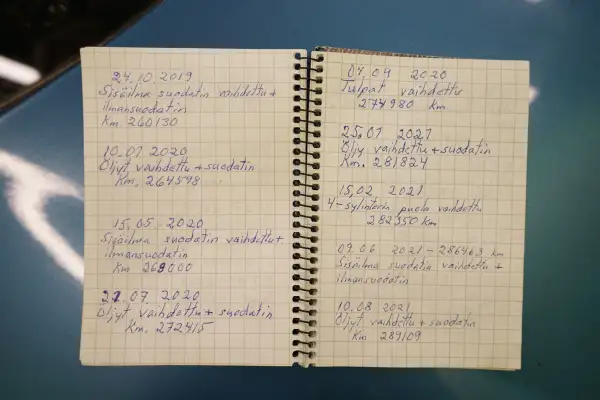 24.10.2019
Sisäilma suodatin vaihdettu +
ilmansuodatin
Km. 260130
10.01.2020
Öljyt vaihdettu + suodatin
Km, 264598
15.05.2020
Sisäilma suodatin vaihdettu +
ilmansuodatin
Km 269000
21.07.2020
Öljyt vaihdettu + suodatin
Km. 272415
04.09 2020
Tulpat vaihdettu
274980 km
25.01 2021
Öljy vaihdettu + suodatin
Km. 281824
15,02 2021
4-sylinterin puola vaihdettu
282350 km
09.06 2021 - 286463 km
Sisäilma suodatin vaihdettu +
ilmansuodatin
10.08 2021
Öljyt vaihdettu + suodatin
Km 289109